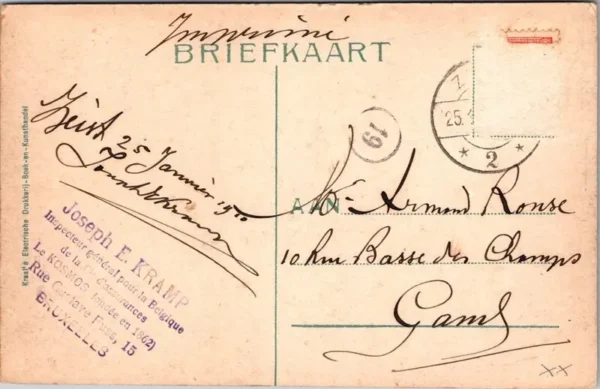 Imprimé
BRIEFKAART
Zeist
25 Janvier
Joseph E. KRAMP
Inspecteur général pour la Belgique
de la Cie d'assurances
Le KOSMOS (fondée en 1862)
Rue Gustave Fuss, 15
BRUXELLES
Kraal's Electrische Drukkerij-Boek-en-Kunsthandel
19
Z
25.1
* 2 *
Mr Armand Ronse
AAN
10 Rue Basse des Champs
Gand
XX